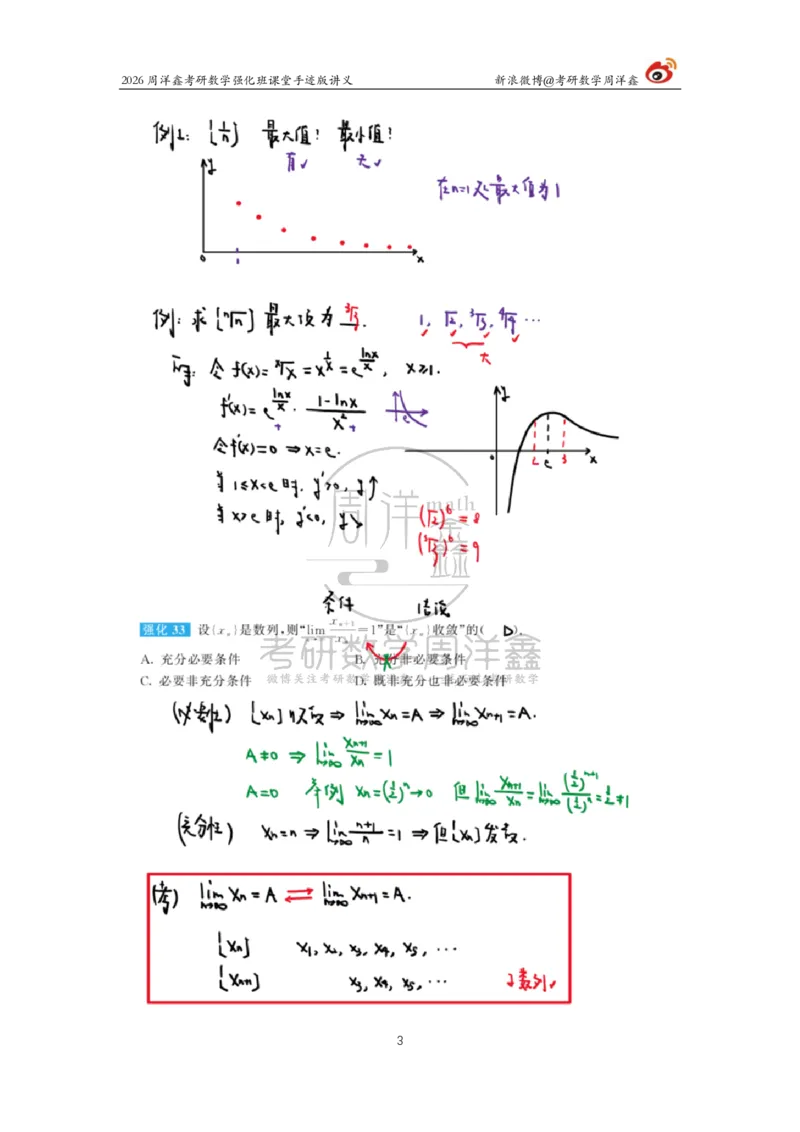 2026 周洋鑫考研数学强化班课堂手迹版讲义 新浪微博@考研数学周洋鑫
例1: {1/n} 最大值! 最小值!
有✓ 无✓
在n=1处最大值为1
y
0 1 x
例: 求{ⁿ√n}最大项为 ³√3.
1, √2, ³√3, ⁴√4 ⋯
大
令 f(x)=ˣ√x = x^(1/x) = e^(lnx/x), x≥1.
f'(x)= e^(lnx/x) · (1-lnx)/x²
+ +
e
令f'(x)=0 ⇒ x=e.
当 1≤x<e 时, y'>0, y↑
当 x>e 时, y'<0, y↘
y
0 2 e 3 x
(√2)⁶ = 8
(³√3)⁶ = 9
周洋鑫 math
条件 结论
强化 33 设{xₙ}是数列,则“lim xₙ₊₁/xₙ =1”是“{xₙ}收敛”的( D ).
A. 充分必要条件 B. 充分非必要条件
C. 必要非充分条件 D. 既非充分也非必要条件
考研数学周洋鑫
(必要性) {xₙ}收敛 ⇒ lim(n→∞) xₙ=A ⇒ lim(n→∞) xₙ₊₁=A.
A≠0 ⇒ lim(n→∞) xₙ₊₁/xₙ = 1
A=0 举例 xₙ=(1/2)ⁿ→0 但 lim(n→∞) xₙ₊₁/xₙ = lim(n→∞) (1/2)ⁿ⁺¹/(1/2)ⁿ = 1/2 ≠1
(充分性) xₙ=n ⇒ lim(n→∞) (n+1)/n =1 ⇒ 但{xₙ}发散.
(考) lim(n→∞) xₙ = A ⇌ lim(n→∞) xₙ₊₁=A.
{xₙ} x₁, x₂, x₃, x₄, x₅, ⋯
{xₙ₊₁} x₃, x₄, x₅, ⋯ 子数列✓
3